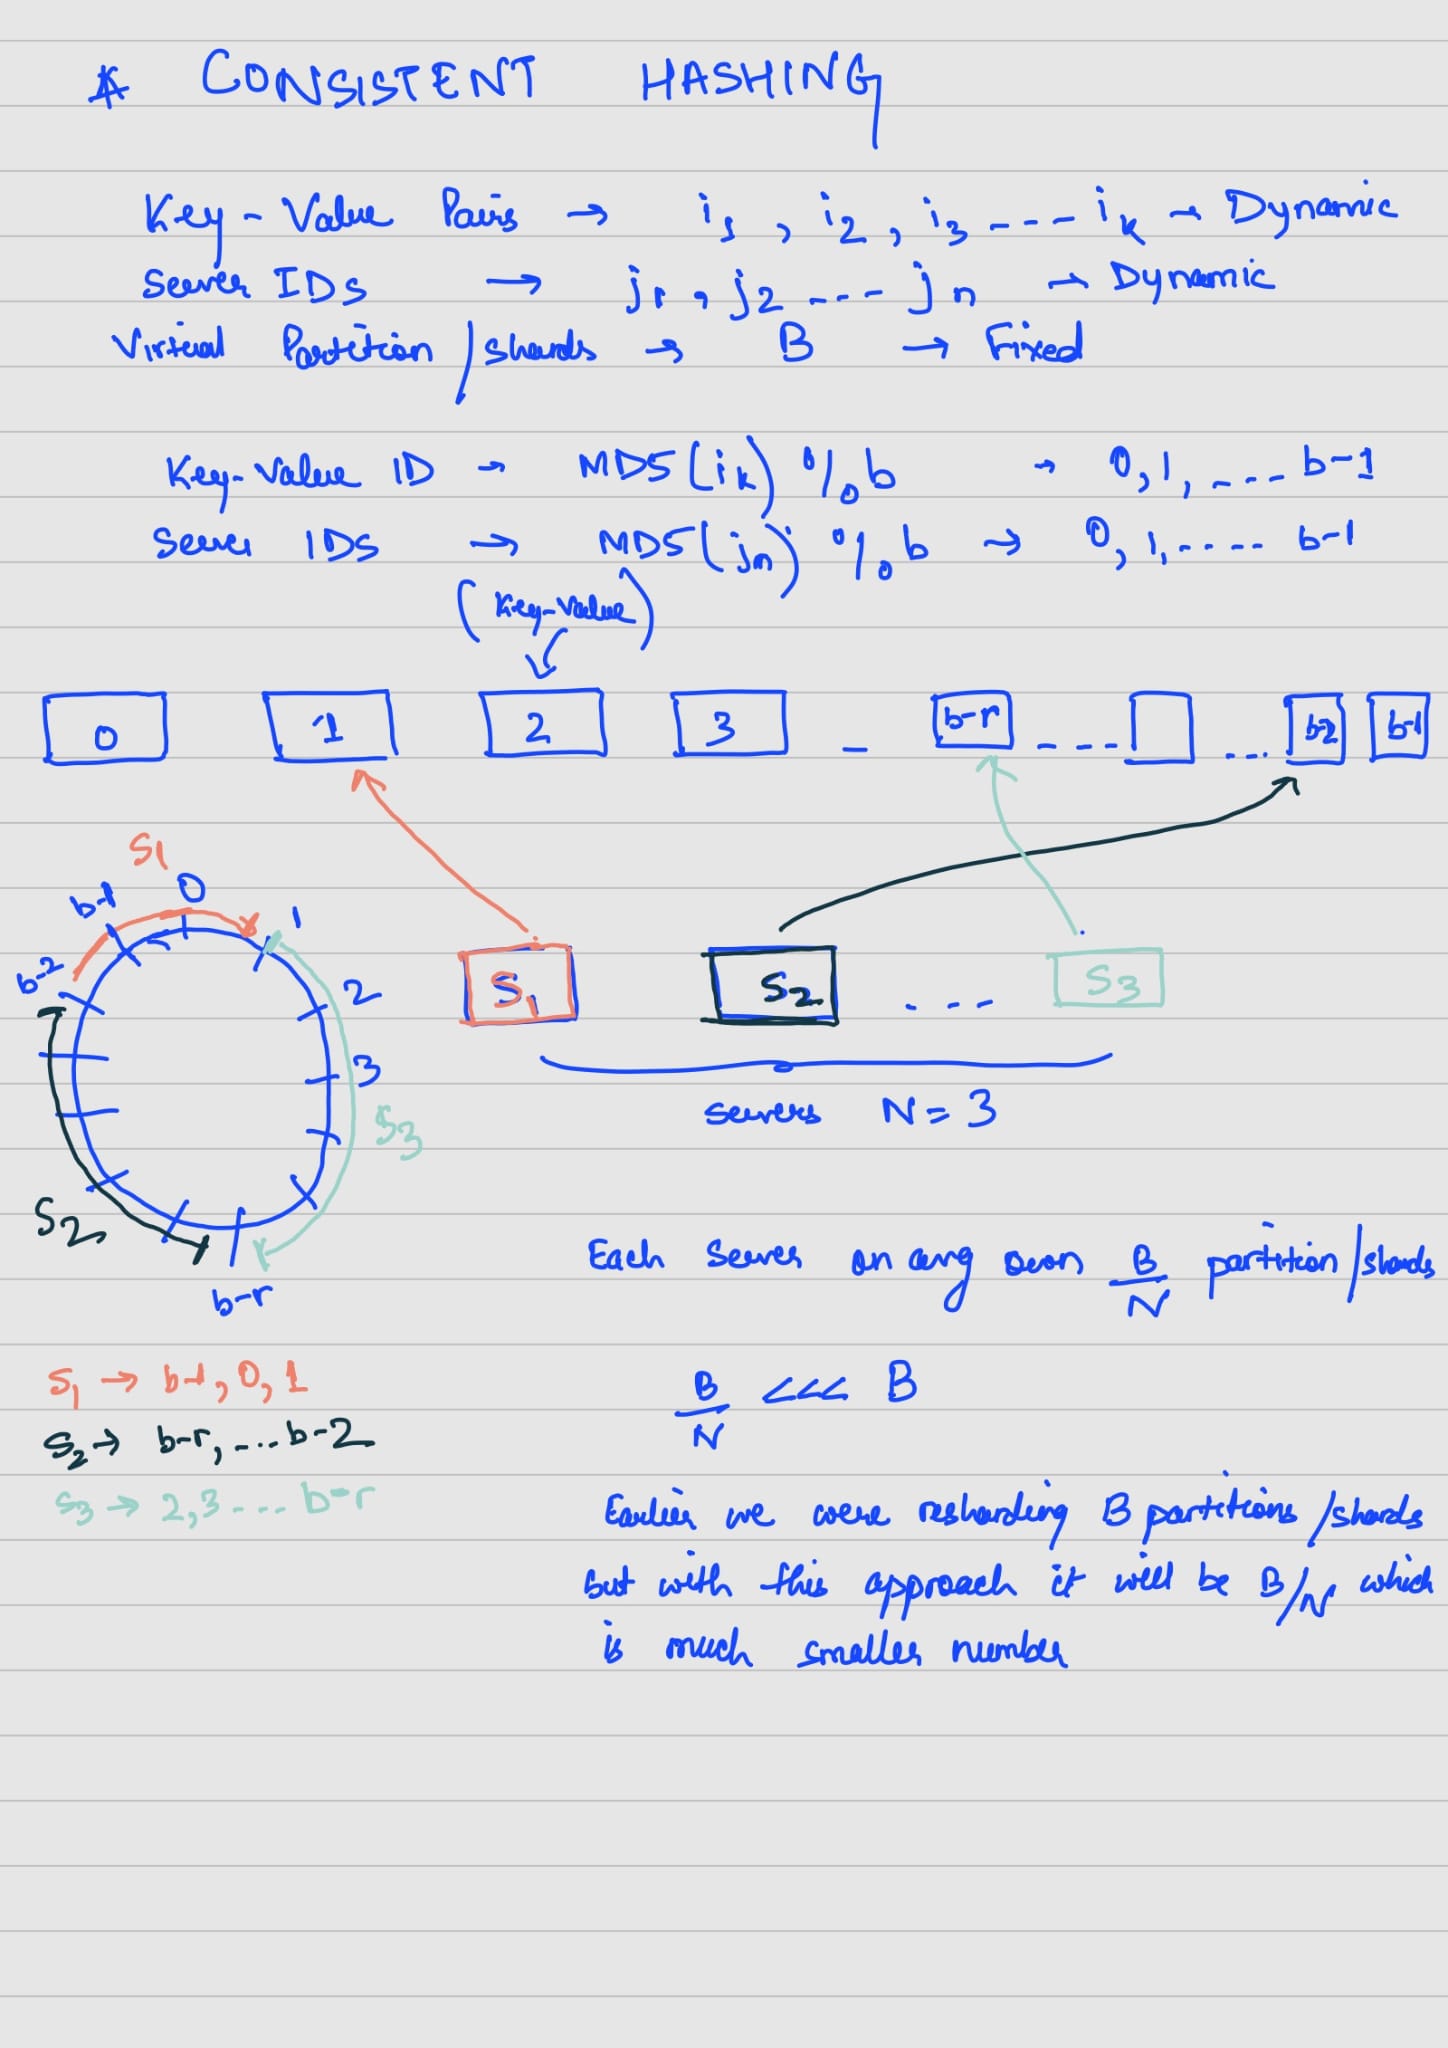 * CONSISTENT HASHING
Key-Value Pairs → i1, i2, i3 ---- ik → Dynamic
Server IDs → j1, j2 ---- jn → Dynamic
Virtual Partition/shards → B → Fixed
Key-Value ID → MD5(ik) % b → 0, 1, ---- b-1
Server IDS → MD5(jn) % b → 0, 1, ---- b-1
(Key-Value)
0 1 2 3 - b-r ---- .... b-2 b-1
S1
b-1 0 1
b-2 2
3
S3
S2
b-r
S1 S2 ... S3
servers N = 3
Each Server on avg own B/N partition/shards
S1 → b-1, 0, 1
S2 → b-r, ... b-2
S3 → 2, 3 ... b-r
B/N <<< B
Earlier we were resharding B partitions/shards
but with this approach it will be B/N which
is much smaller number